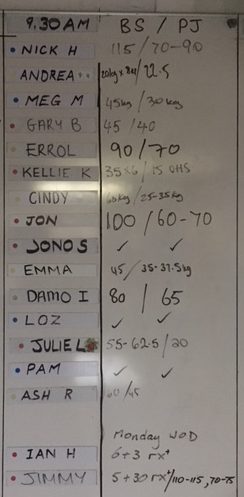 9.30AM BS / PJ
NICK H 115/70-90
ANDREA 22.5
MEG M 45kg / 30kg
GARY B 45 /40
ERROL 90/70
KELLIE K 35x6 / 15 OHS
CINDY / 25-35kg
JON 100/60-70
JONO S ✓ ✓
EMMA 45/ 35-37.5kg
DAMO I 80 | 65
LOZ ✓ ✓
JULIE L 55-62.5/30
PAM ✓ ✓
ASH R 60/45
Monday WOD
IAN H 6+3 rx+
JIMMY 5+30 rx+/110-115, 70-75